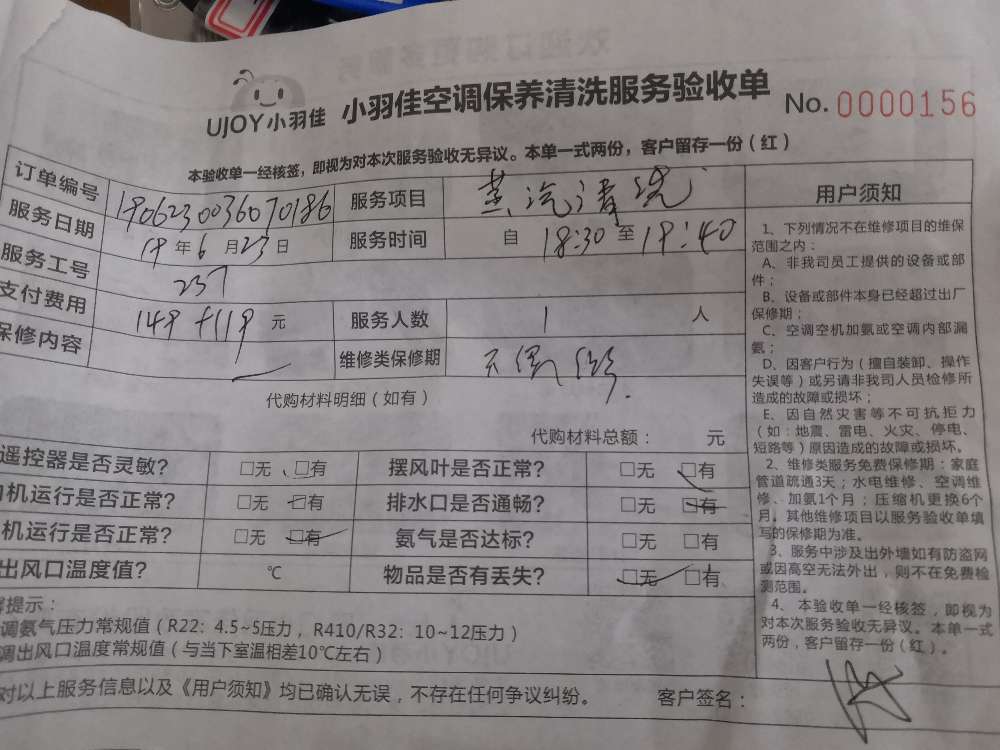 UJOY小羽佳 小羽佳空调保养清洗服务验收单 No. 0000156
本验收单一经核签，即视为对本次服务验收无异议。本单一式两份，客户留存一份（红）
订单编号 1906230036070186 服务项目 蒸汽清洗
服务日期 19年6月23日 服务时间 自 18:30 至 19:40
服务工号 237
支付费用 149+119 元 服务人数 1 人
保修内容 维修类保修期
代购材料明细（如有）
代购材料总额： 元
遥控器是否灵敏? □无 □有 摆风叶是否正常? □无 □有
机运行是否正常? □无 □有 排水口是否通畅? □无 □有
机运行是否正常? □无 □有 氨气是否达标? □无 □有
出风口温度值? ℃ 物品是否有丢失? □无 □有
提示：
调氨气压力常规值（R22：4.5~5压力，R410/R32：10~12压力）
调出风口温度常规值（与当下室温相差10℃左右）
对以上服务信息以及《用户须知》均已确认无误，不存在任何争议纠纷。 客户签名：
用户须知
1、下列情况不在维修项目的维保
范围之内：
A、非我司员工提供的设备或部
件；
B、设备或部件本身已经超过出厂
保修期；
C、空调空机加氨或空调内部漏
氨；
D、因客户行为（擅自装卸、操作
失误等）或另请非我司人员检修所
造成的故障或损坏；
E、因自然灾害等不可抗拒力
（如：地震、雷电、火灾、停电、
短路等）原因造成的故障或损坏。
2、维修类服务免费保修期：家庭
管道疏通3天；水电维修、空调维
修、加氨1个月；压缩机更换6个
月。其他维修项目以服务验收单填
写的保修期为准。
3、服务中涉及出外墙如有防盗网
或因高空无法外出，则不在免费检
测范围。
4、本验收单一经核签，即视为
对本次服务验收无异议。本单一式
两份，客户留存一份（红）。